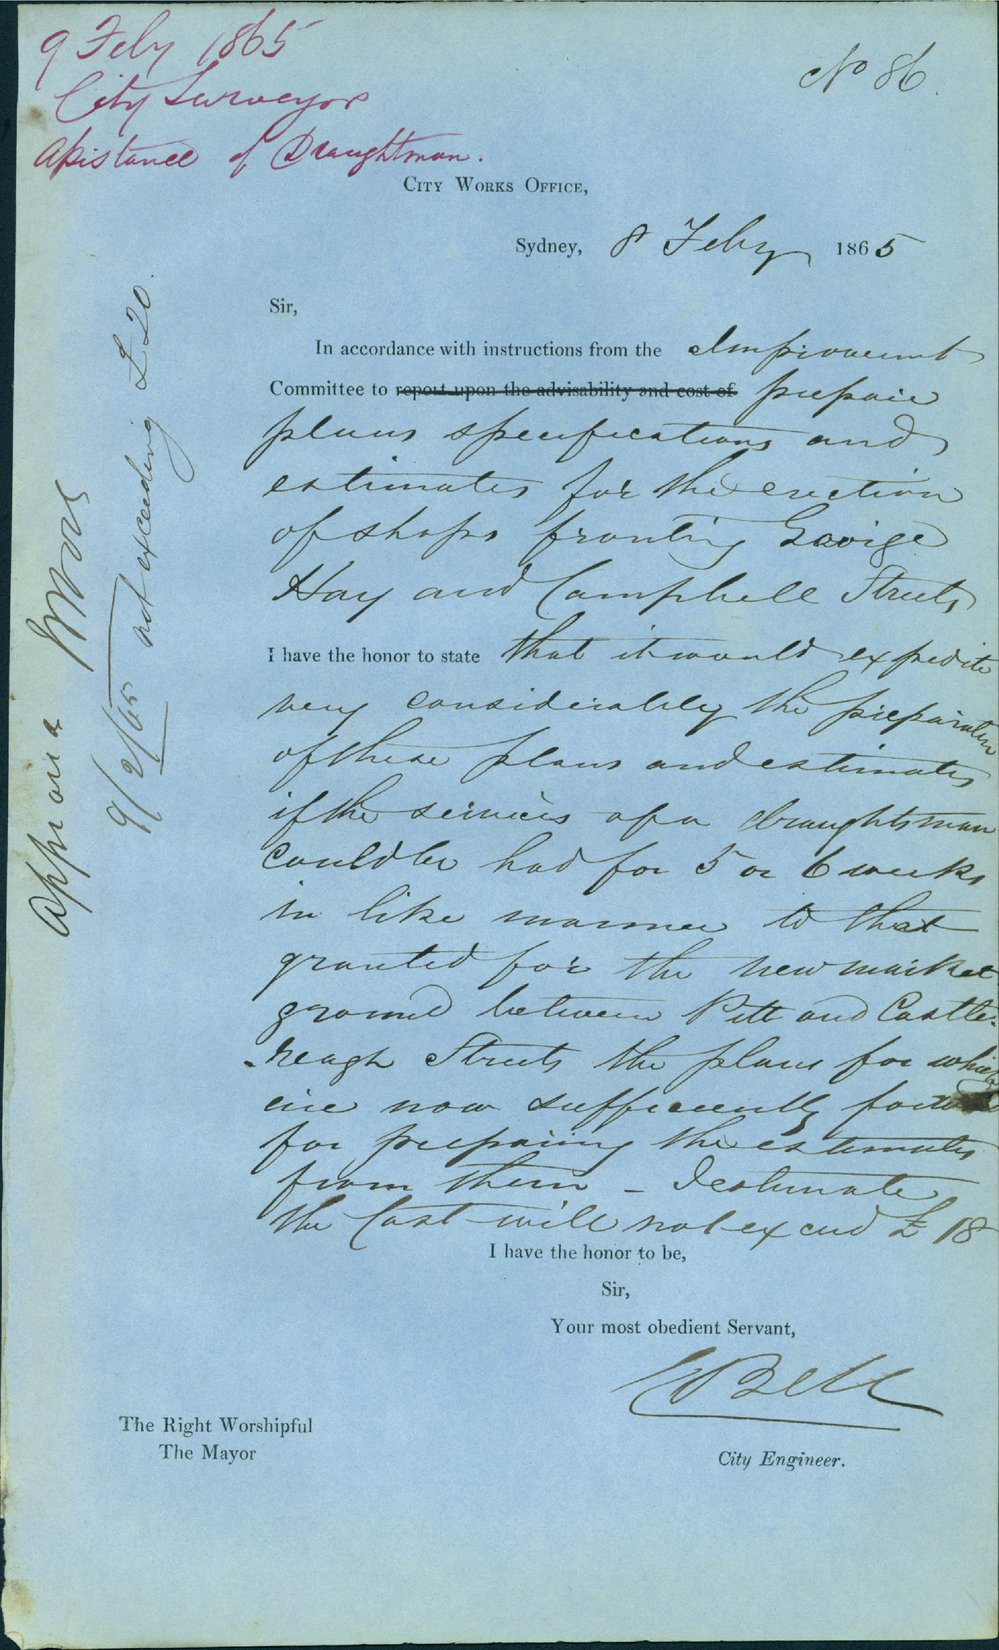 9 Feby 1865
City Surveyor
Assistance of Draughtman.
No 86.
CITY WORKS OFFICE,
Sydney, 8 Feby 1865
Sir,
In accordance with instructions from the Improvement
Committee to report upon the advisability and cost of prepare
plans specifications and
estimates for the erection
of shops fronting George
Hay and Campbell Streets
I have the honor to state that it would expedite
very considerably the preparation
of these plans and estimates
if the services of a draughtsman
could be had for 5 or 6 weeks
in like manner to that
granted for the new market
ground between Pitt and Castle-
-reagh Streets the plans for which
are now sufficiently
for preparing the estimates
from them – I estimate
the Cost will not exceed £ 18
I have the honor to be,
Sir,
Your most obedient Servant,
E Bell
City Engineer.
The Right Worshipful
The Mayor
Approved
9/2/65 not exceeding £20.